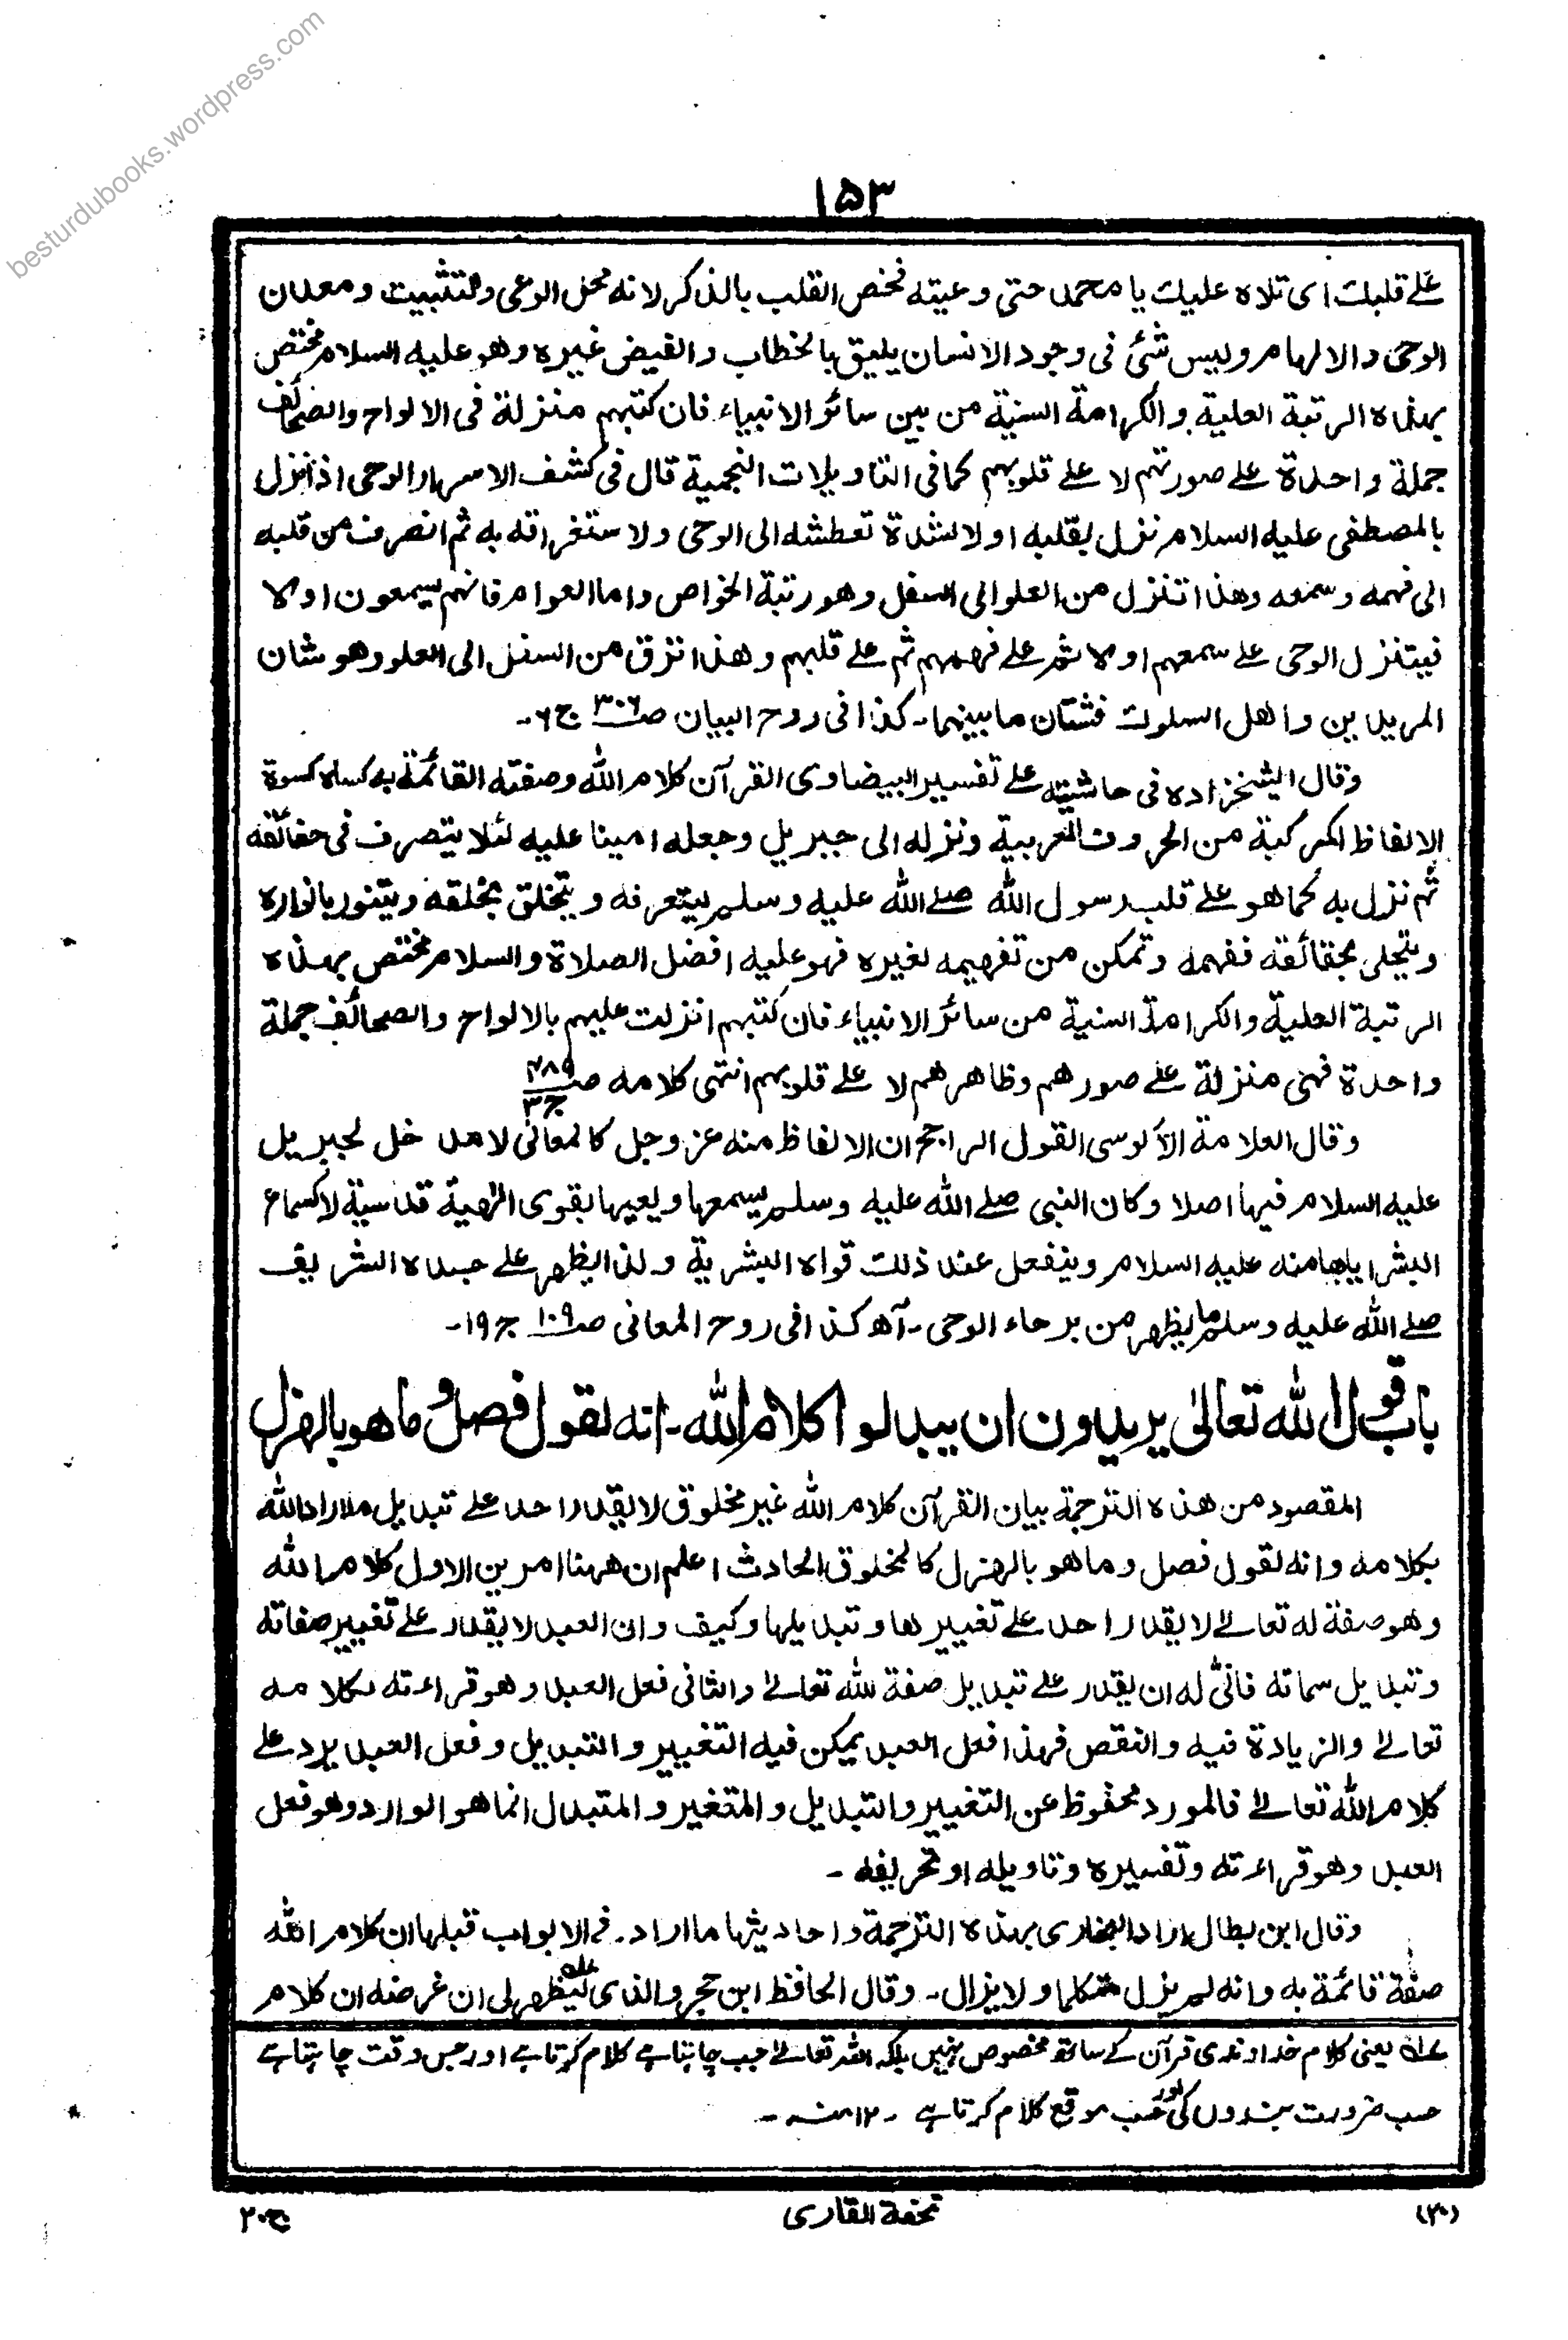 besturdubooks.wordpress.com
١٥٣
علے قلبك اى تلاه عليك يا محمد حتى وعيته فخص القلب بالذكر لانه محل الوعى والتثبيت ومعدن
الوحى والالهام وليس شئ فى وجود الانسان يليق بالخطاب والفيض غيره وهو عليه السلام مختص
بهذه الرتبة العلية والكرامة السنية من بين سائر الانبياء فان كتبهم منزلة فى الالواح والصحائف
جملة واحدة علے صورتهم لا علے قلوبهم كما فى التاويلات النجمية قال فى كشف الاسرار الوحى اذا نزل
بالمصطفى عليه السلام نزل بقلبه اولا لشدة تعطشه الى الوحى ولاستغراقه به ثم انصرف من قلبه
الى فهمه وسمعه وهذا تنزل من العلو الى السفل وهو رتبة الخواص واما العوام فانهم يسمعون اولا
فيتنزل الوحى علے سمعهم اولا ثم علے فهمهم ثم علے قلبهم وهذا نزق من السفل الى العلو وهو شان
المريدين واهل السلوك فشتان ما بينهما۔ كذا فى روح البيان صـ ٣٠٦ ج ٦۔
وقال الشيخزاده فى حاشيته علے تفسير البيضاوى القرآن كلام الله وصفته القائمة به كساه كسوة
الالفاظ المركبة من الحروف العربية ونزله الى جبريل وجعله امينا عليه لئلا يتصرف فى حقائقه
ثم نزل به كما هو علے قلب رسول الله صلے الله عليه وسلم ليتعرفه ويتخلق بخلقه ويتنور بانواره
ويتجلى بحقائقه ففهمه وتمكن من تفهيمه لغيره فهو عليه افضل الصلاة والسلام مختص بهذه
الرتبة العلية والكرامة السنية من سائر الانبياء فان كتبهم انزلت عليهم بالالواح والصحائف جملة
واحدة فهى منزلة علے صورهم وظاهرهم لا علے قلوبهم انتهى كلامه صـ ٤٨٩ ج ٣
وقال العلامة الآلوسى القول الراجح ان الالفاظ منه عز وجل كالمعانى لا مدخل لجبريل
عليه السلام فيها اصلا وكان النبى صلے الله عليه وسلم يسمعها ويعيها بقوى الٰهية قدسية لا كسماع
البشر اياها منه عليه السلام وينفعل عند ذلك قواه البشرية ولذا يظهر علے جسده الشريف
صلے الله عليه وسلم ما يظهر من برحاء الوحى۔ آه كذا فى روح المعانى صـ ١٠٩ ج ١٩۔
باب قول الله تعالىٰ يريدون ان يبدلوا كلام الله۔ انه لقول فصل وما هو بالهزل
المقصود من هذه الترجمة بيان القرآن كلام الله غير مخلوق لا يقدر احد علے تبديل ما اراد الله
بكلامه وانه لقول فصل وما هو بالهزل كالمخلوق الحادث اعلم ان ههنا امرين الاول كلام الله
وهو صفة له تعالے لا يقدر احد علے تغييرها وتبديلها وكيف وان العبد لا يقدر علے تغيير صفاته
وتبديل سماته فانّى له ان يقدر علے تبديل صفة لله تعالے والثانى فعل العبد وهو قراءته لكلامه
تعالے والزيادة فيه والنقص فهذا فعل العبد يمكن فيه التغيير والتبديل وفعل العبد يرد علے
كلام الله تعالے فالمورد محفوظ عن التغيير والتبديل والمتغير والمتبدل انما هو الوارد وهو فعل
العبد وهو قراءته وتفسيره وتاويله او تحريفه -
وقال ابن بطال اراد البخارى بهذه الترجمة واحاديثها ما اراد۔ فى الابواب قبلها ان كلام الله
صفة قائمة به وانه لم يزل متكلما ولا يزال۔ وقال الحافظ ابن حجر والذى يظهر لى ان غرضه ان كلام
عله یعنی کلام خداوندی قرآن کے ساتھ مخصوص نہیں بلکہ اللہ تعالے جب چاہتا ہے کلام کرتا ہے اور جس وقت چاہتا ہے
حسب ضرورت بندوں کی اور حسب موقع کلام کرتا ہے۔ ۱۲ منہ۔
(٢٠)
تحفة القارى
ج ٢٠